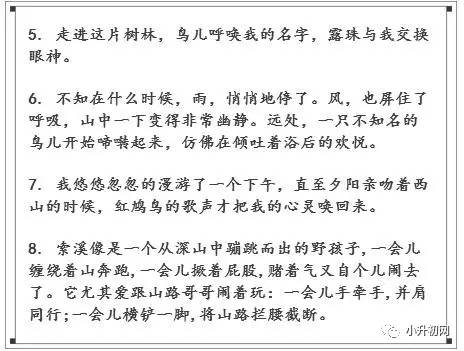 5. 走进这片树林，鸟儿呼唤我的名字，露珠与我交换
眼神。
6. 不知在什么时候，雨，悄悄地停了。风，也屏住了
呼吸，山中一下变得非常幽静。远处，一只不知名的
鸟儿开始啼啭起来，仿佛在倾吐着浴后的欢悦。
7. 我悠悠忽忽的漫游了一个下午，直至夕阳亲吻着西
山的时候，红鸠鸟的歌声才把我的心灵唤回来。
8. 索溪像是一个从深山中蹦跳而出的野孩子,一会儿
缠绕着山奔跑,一会儿撅着屁股,赌着气又自个儿闹去
了。它尤其爱跟山路哥哥闹着玩：一会儿手牵手,并肩
同行;一会儿横铲一脚,将山路拦腰截断。
小升初网